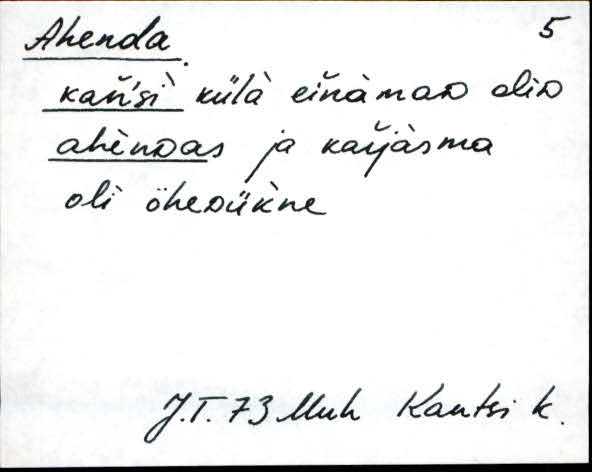 Ahenda. 5
kań̆śì külà eĭnàmaᴅ oliᴅ
ahènᴅas ja kaŕjàsma
oli öheᴅükine
J.T. 73 Muh Kantsi k.